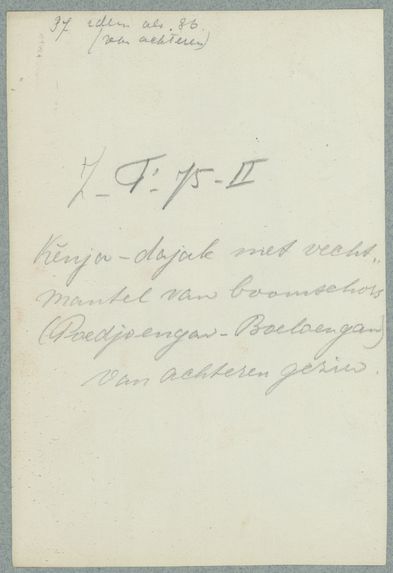 37 idem als. 86.
(van achteren)
Z-T: 75-II
Kĕnja-dajak met vecht„
mantel van boomschors
(Poedjoengan-Boeloengan)
van achteren gezien.